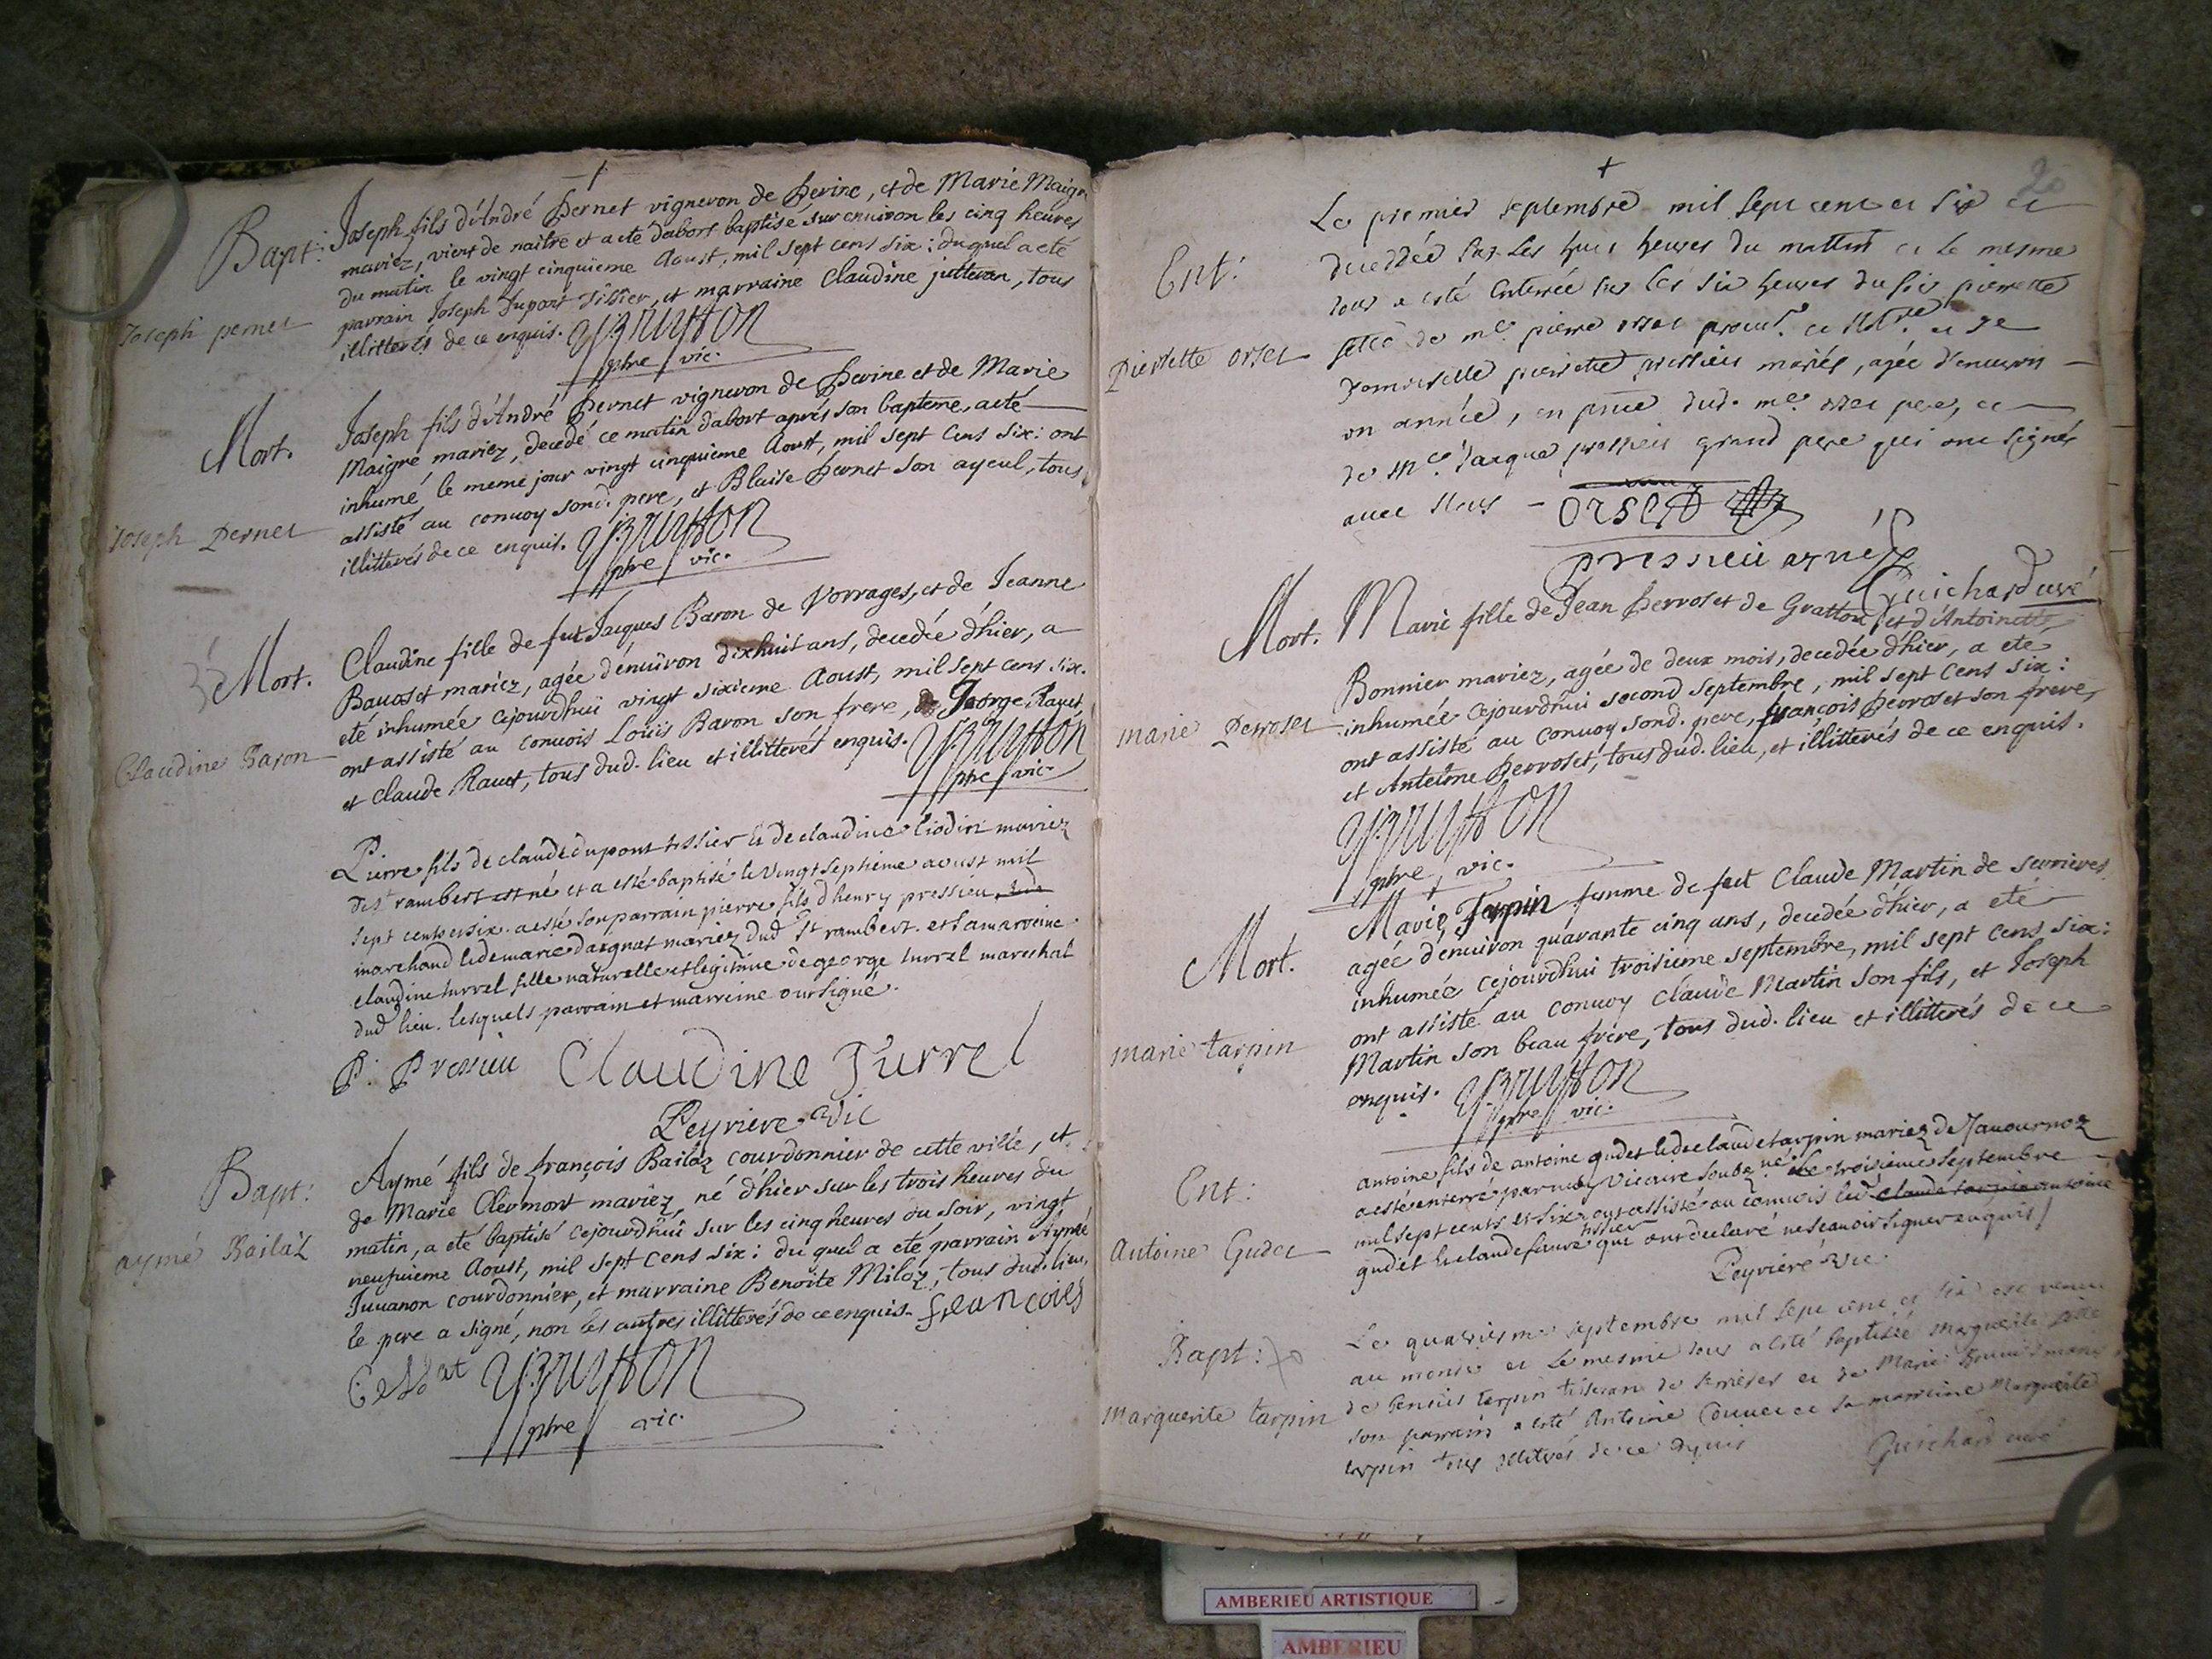 Bapt:
Joseph pernet
Joseph fils d'André Pernet vigneron de Serine, et de Marie Maigre
mariez, vient de naître et a eté dabort baptisé sur environ les cinq heures
du matin le vingt cinquieme Aoust, mil sept cens six: duquel a eté
parrain Joseph Dupont Tissier, et marraine Claudine jutteran, tous
illitterés de ce enquis. Bruyson
pbre vic.
Mort.
Joseph Pernet
Joseph fils d'André Pernet vigneron de Serine et de Marie
Maigre mariez, decedé ce matin dabort aprés son bapteme, a eté
inhumé le meme jour vingt cinquieme Aoust, mil sept cens six: ont
assisté au convoy sond. pere, et Blaise Pernet son ayeul, tous
illitterés de ce enquis. Bruyson
pbre vic.
Mort.
Claudine Baron
Claudine fille de fut Jacques Baron de Vorrages, et de Jeanne
Bavoset mariez, agée denviron dixhuit ans, decedée d'hier, a
eté inhumée cejourdhui vingt sixieme Aoust, mil sept cens six.
ont assisté au convois Louis Baron son frere, George Ravet,
et Claude Ravet, tous dud. lieu et illitterés enquis. Bruyson
pbre vic.
Pierre fils de claude dupont tissier et de claudine mariez
de St rambert est né et a esté baptisé le vingt septieme aoust mil
sept cents et six. a esté son parrain pierre fils d henry pressieu
marchand et de marie dargnat mariez dud St rambert. et sa marreine
claudine turrel fille naturelle et legitime de george turrel mareshal
dud lieu. lesquels parrain et marreine ont signé.
P. Pressieu Claudine Turrel
Peyriere vic
Bapt:
aymé Bailaz
Aymé fils de françois Bailaz courdonnier de cette ville, et
de Marie Clermont mariez, né d'hier sur les trois heures du
matin, a eté baptisé cejourdhui sur les cinq heures du soir, vingt
neufuieme Aoust, mil sept cens six: du quel a eté parrain Aymé
Juvanon courdonnier, et marraine Benoite Milaz, tous dud. lieu,
le pere a signé, non les autres illitterés de ce enquis. francoies
Bruyson
pbre vic.
20
Ent:
Pierrette orset
Le premier septembre mil sept cent et six est
decedée sur les huit heures du mattin et le mesme
jour a esté enterrée sur les six heures du soir pierrette
fille de me. pierre orset procur. et Notre. et de
Demoiselle pierrette pressieu mariés, agée d'environ
un année, en pnce dud. me. orset pere, et
de me. Jacque pressieu grand pere qui ont signés
avec Nous - Orset
Pressieu aisné
Guichard curé
Mort.
marie Perroset
Marie fille de Jean Perroset de Grattoux, et d'Antoinette
Bonnier mariez, agée de deux mois, decedée d'hier, a eté
inhumée cejourdhui second septembre, mil sept cens six:
ont assisté au convoy sond. pere, françois Perroset son frere,
et Antelme Perroset, tous dud. lieu, et illitterés de ce enquis.
Bruyson
pbre vic.
Mort.
marie tarpin
Marie Tarpin femme de feut Claude Martin de serrieres
agée denviron quarante cinq ans, decedée d'hier, a eté
inhumée cejourdhui troisieme septembre, mil sept cens six:
ont assisté au convoy Claude Martin son fils, et Joseph
Martin son beau frére, tous dud. lieu et illitterés de ce
enquis. Bruyson
pbre vic.
Ent:
Antoine Gudet
antoine fils de antoine gudet et de claude tarpin mariez de Javournoz
a esté enterré par moy vicaire soubzné. Le troisieme septembre
mil sept cents et six ont assisté au convois led claude tarpin antoine
gudet et claude favre tissier qui ont declaré ne scavoir signer enquis
Peyriere vic.
Bapt:
Marguerite tarpin
Le quatriesme septembre mil sept cent et six est venue
au monde et le mesme jour a esté baptisée Marguerite fille
de benoist tarpin tisseran de serrieres et de Marie mariés
son parrain a esté Antoine et sa marraine Marguerite
tarpin tous illitrés de ce enquis
Guichard curé
AMBERIEU ARTISTIQUE
AMBERIEU